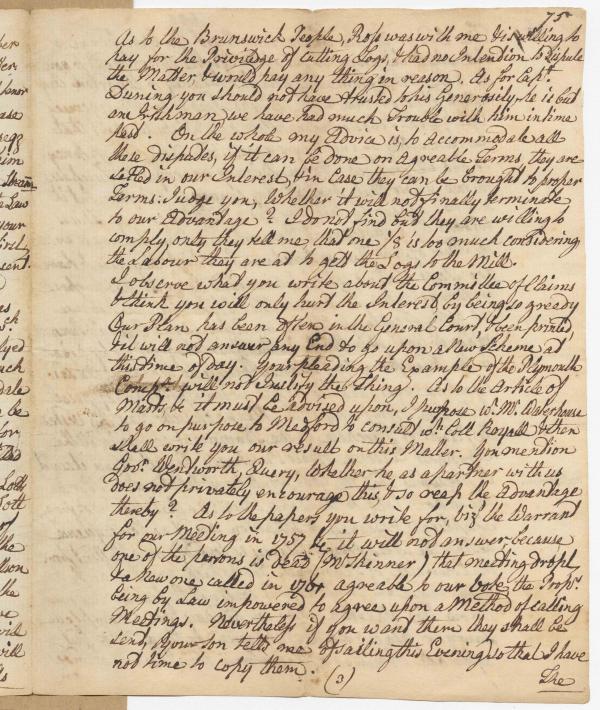 75
As to the Brunswick People, Ross was with me & is willing to
pay for the Priviledge of cutting Logs, & had no Intention to Dispute
the Matter, & would pay any thing in reason. As for Capt.
Duning you should not have trusted to his Generosity, he is but
an Irishman, we have had much Trouble with him in time
past. On the whole my Advice is, to accommodate all
these disputes, if it can be done on Agreable Terms, they are
settled in our Interest, & in Case they can be brought to proper
Terms: Judge you, Whether it will not finally terminate
to our Advantage? I do not find but they are willing to
comply, only they tell me that one 1/8 is too much considering
the Labour they are at to gett the Logs to the Mill.
I observe what you write about the Committee of Claims
& think you will only hurt the Interest, by being so greedy
Our Plan has been often in the General Court, & been printed,
& it will not answer any End to go upon a New Scheme at
this time of day. Your pleading the Example of the Plymouth
Compy. will not Justify the Thing. As to the Article of
Masts, &c it must be advised upon, I purpose wth. Mr. Waterhouse
to go on purpose to Medford to consult wth. Coll Royall & then
shall write you our result on this Matter. You mention
Govr. Wentworth, Query, Whether he, as a partner with us
does not privately encourage this, & so reap the Advantage
thereby? As to the papers you write for, vizt. the Warrant
for our Meeting in 1757 &c it will not answer because
one of the persons is dead (Mr. Skinner) that meeting dropt,
& a New one called in agreable to our Vote, the Propr.
being by Law impowered to agree upon a Method of calling
Meetings. Nevertheless if you want them they shall be
sent, Your son tells me of sailing this Evening so that I have
not time to copy them.
(3)
The